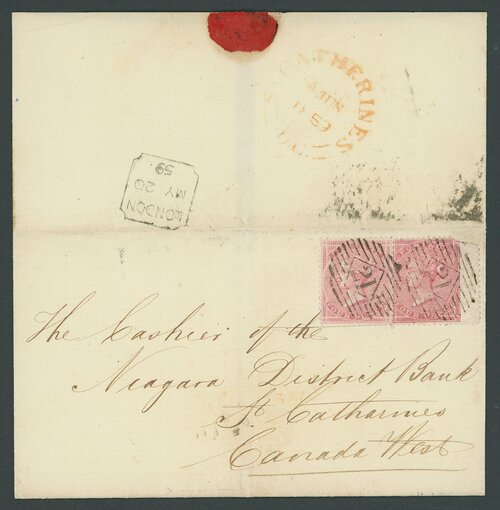 ST CATHERINES
4 JUN
59
U.C.
LONDON
MY 20
59
12
12
The Cashier of the
Niagara District Bank
St. Catharines
Canada West